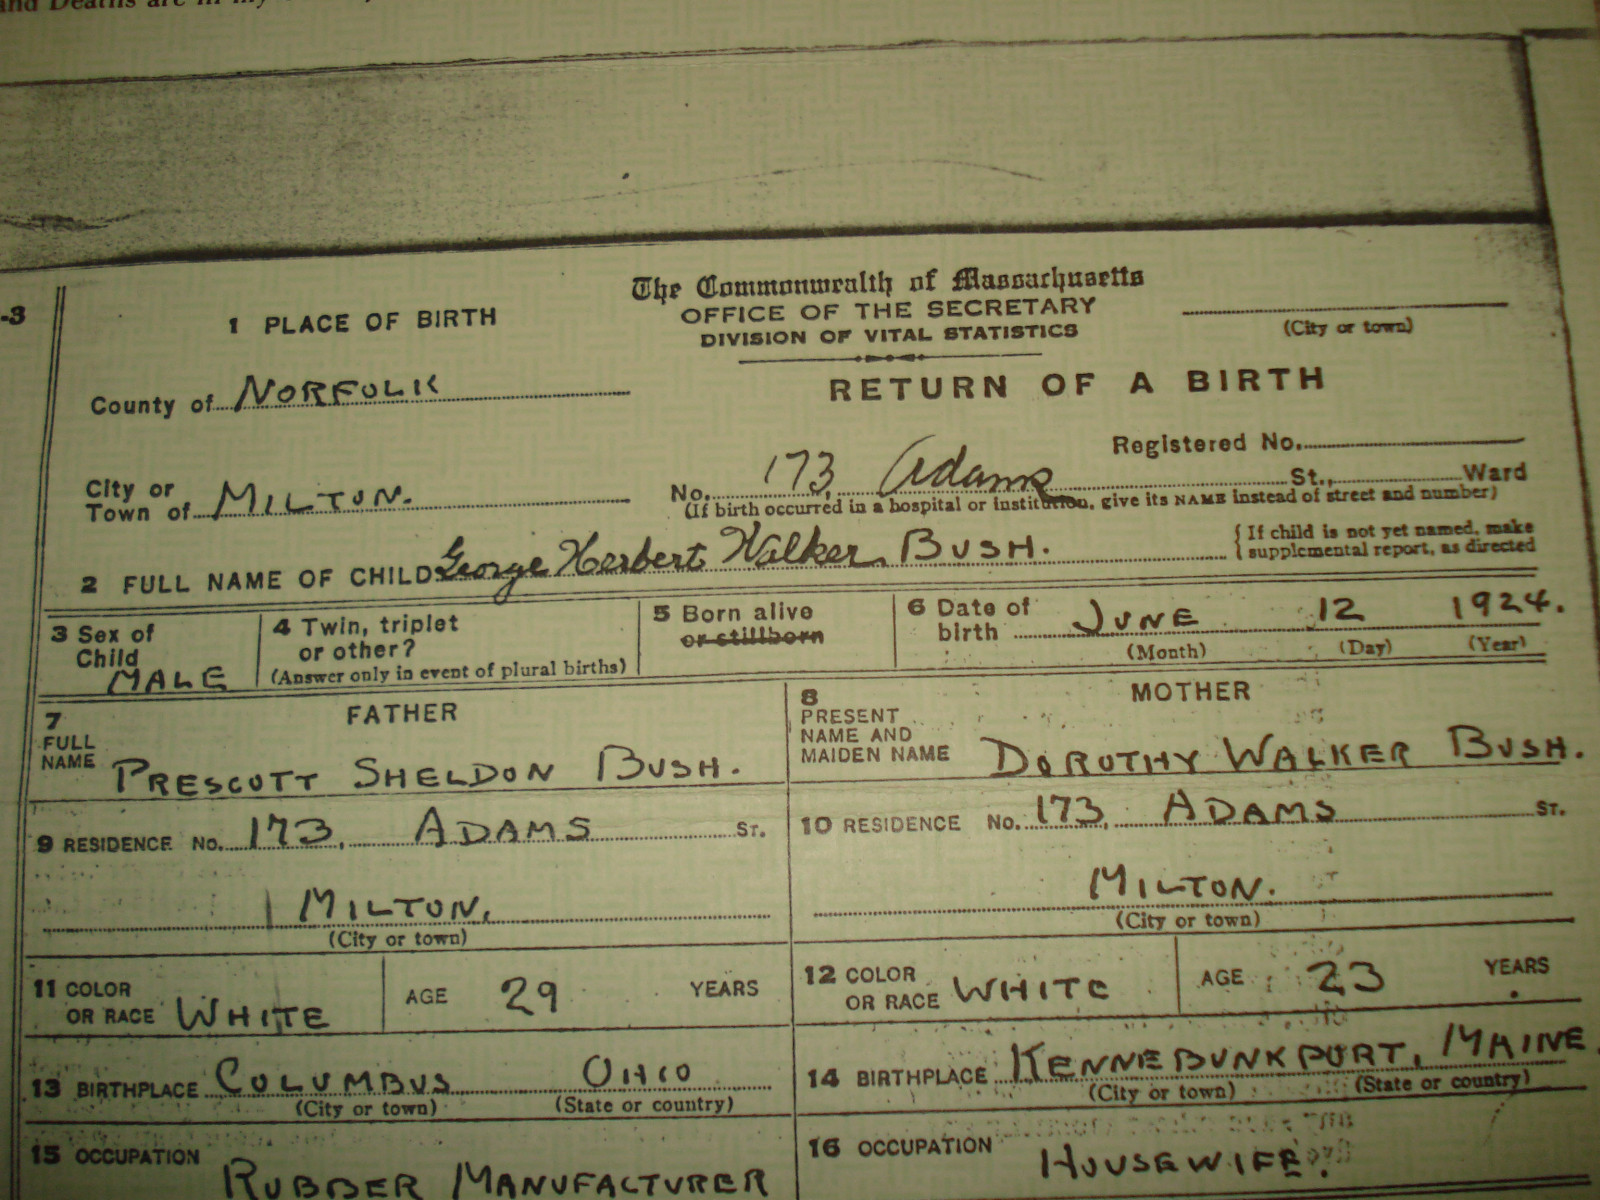 and Deaths are in my
-3
The Commonwealth of Massachusetts
OFFICE OF THE SECRETARY
DIVISION OF VITAL STATISTICS
(City or town)
1 PLACE OF BIRTH
RETURN OF A BIRTH
County of NORFOLK
Registered No.
City or
Town of MILTON.
No. 173, Adams St., Ward
(If birth occurred in a hospital or institution, give its NAME instead of street and number)
2 FULL NAME OF CHILD George Herbert Walker BUSH.
{If child is not yet named, make
supplemental report, as directed
3 Sex of
Child
MALE
4 Twin, triplet
or other?
(Answer only in event of plural births)
5 Born alive
or stillborn
6 Date of
birth JUNE 12 1924.
(Month) (Day) (Year)
7 FATHER
FULL
NAME PRESCOTT SHELDON BUSH.
8 MOTHER
PRESENT
NAME AND
MAIDEN NAME DOROTHY WALKER BUSH.
9 RESIDENCE No. 173, ADAMS ST.
MILTON.
(City or town)
10 RESIDENCE No. 173, ADAMS ST.
MILTON.
(City or town)
11 COLOR
OR RACE WHITE
AGE 29 YEARS
12 COLOR
OR RACE WHITE
AGE 23 YEARS
13 BIRTHPLACE COLUMBUS OHIO
(City or town) (State or country)
14 BIRTHPLACE KENNEBUNKPORT, MAINE
(City or town) (State or country)
15 OCCUPATION
RUBBER MANUFACTURER
16 OCCUPATION
HOUSEWIFE.